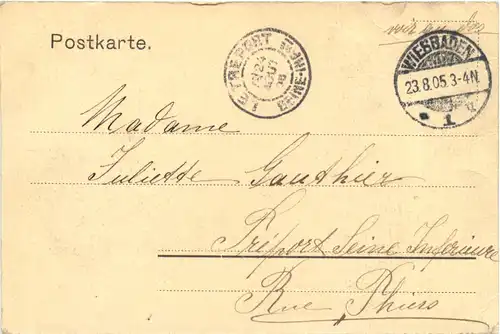 Postkarte.
LE TREPORT SEINE-INFRE
24
AOUT
05
WIESBADEN
23.8.05.3-4N.
* 1 d
Madame
Juliette Gauthier
Tréport Seine Inférieure
Rue Thiers